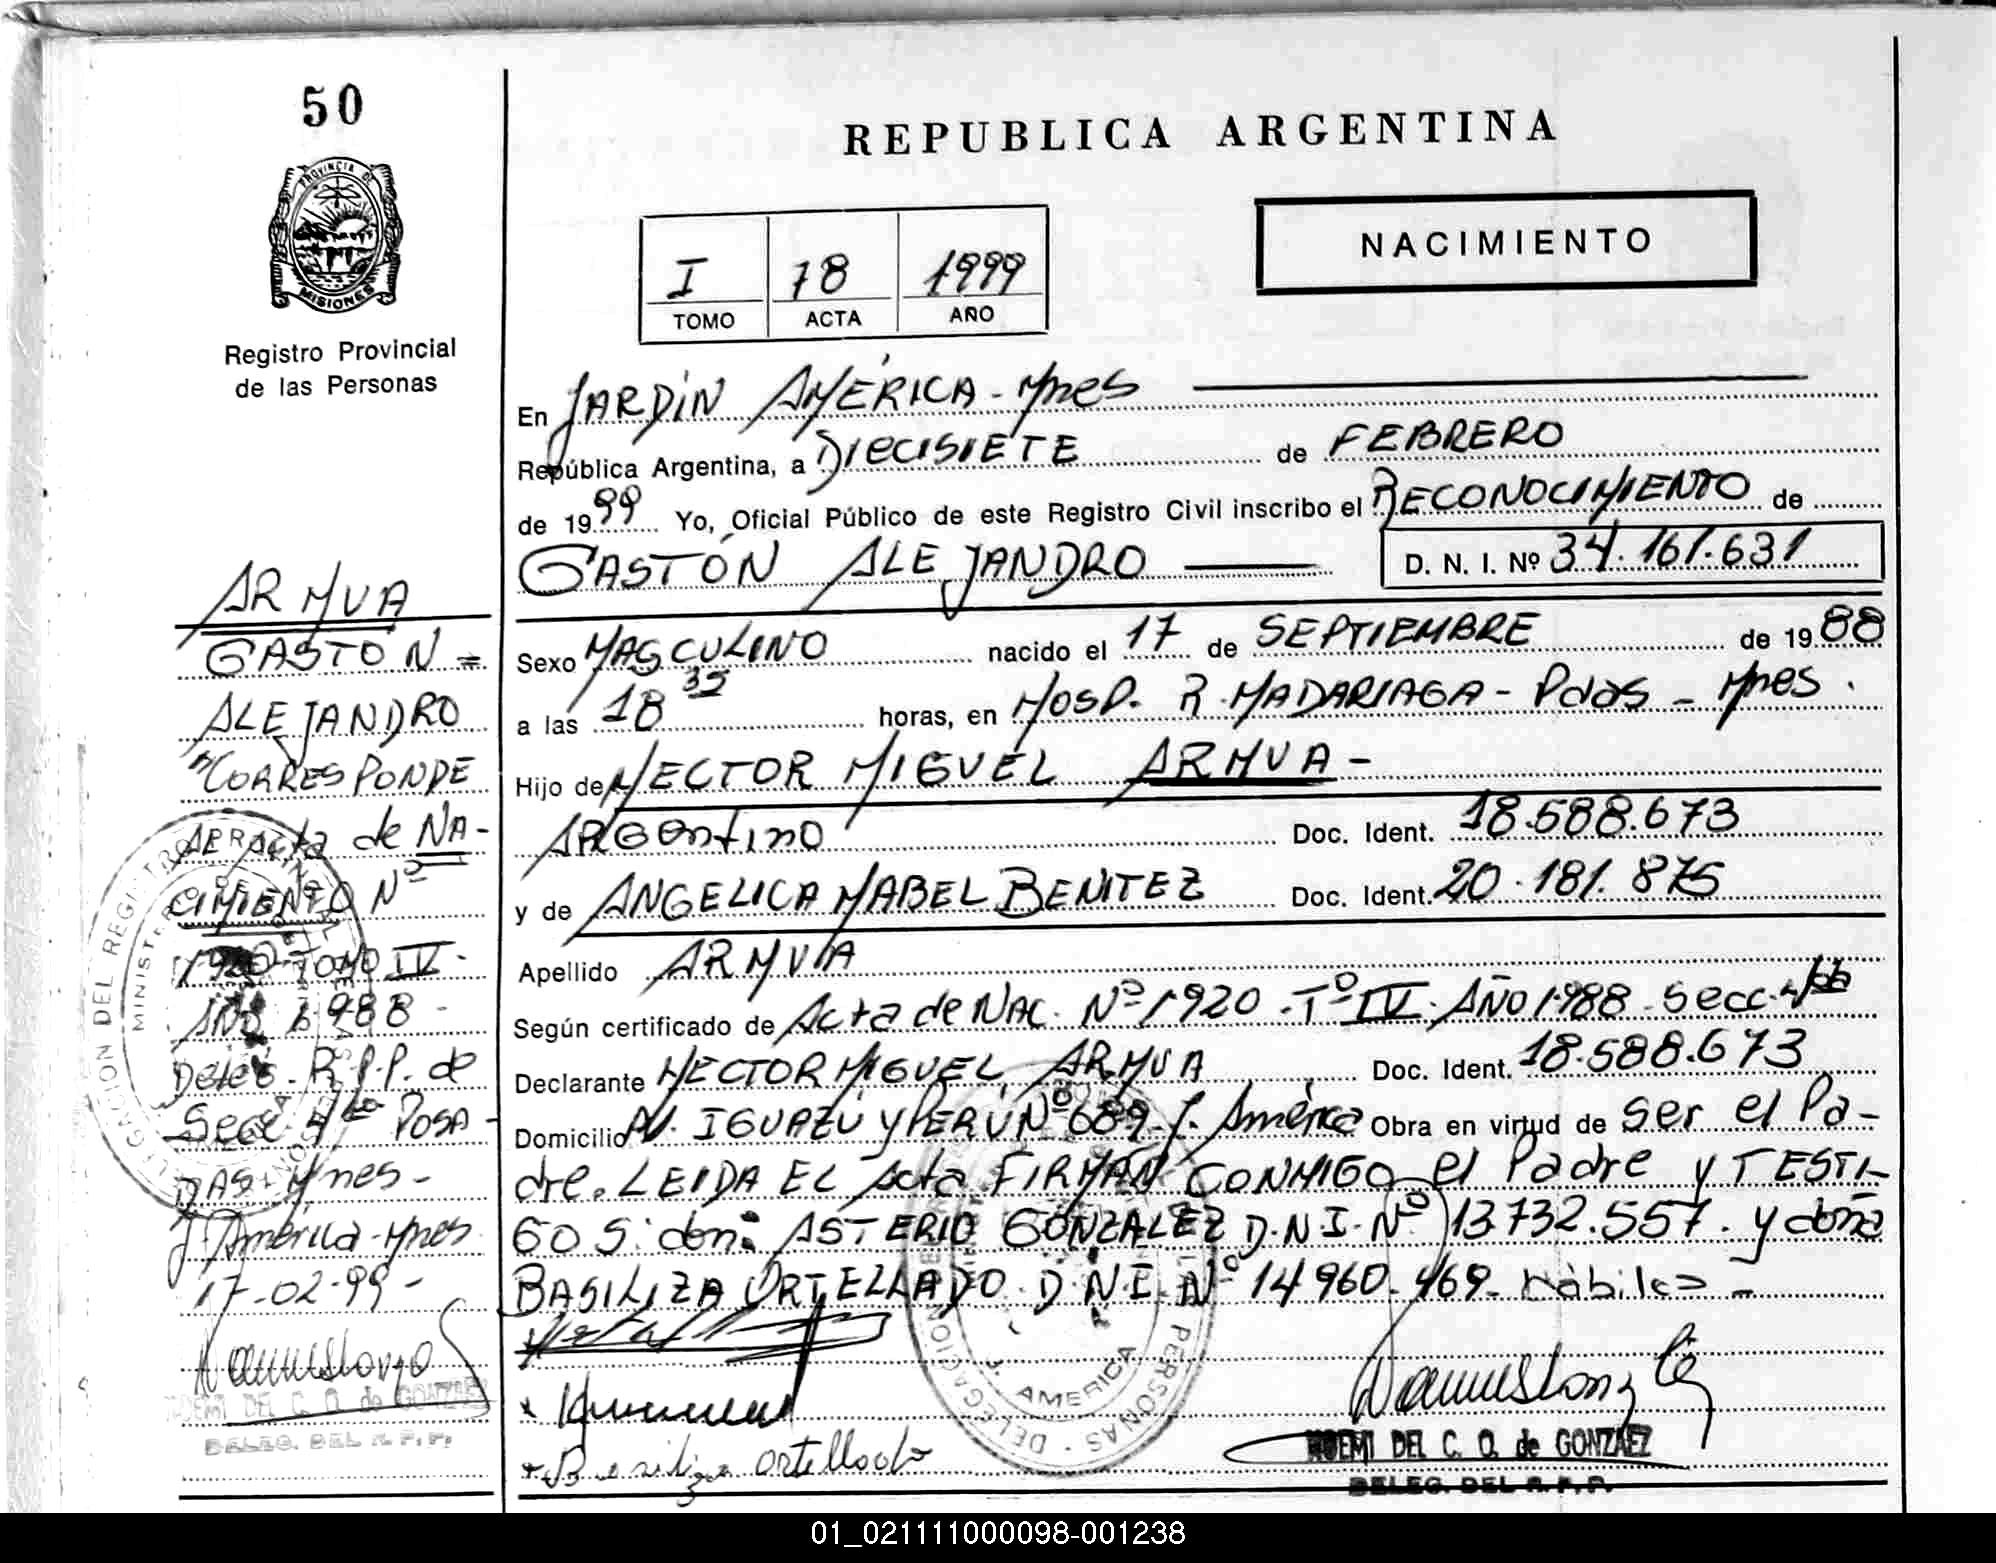 50
PROVINCIA DE
MISIONES
Registro Provincial
de las Personas
ARMUA
GASTÓN =
ALEJANDRO
CORRESPONDE
AL Acta de NA-
CIMIENTO Nº
1920 TOMO IV.
AÑO 1988 -
Deleg. R.P.P. de
Secc 4ta POSA-
DAS. Mnes -
J. América - Mnes
17-02-99 -
NOEMI DEL C. O. de GONZALEZ
DELEG. DEL R. P. P.
REPUBLICA ARGENTINA
NACIMIENTO
I 78 1999
TOMO ACTA AÑO
En JARDÍN AMÉRICA - Mnes
República Argentina, a DIECISIETE de FEBRERO
de 1999 Yo, Oficial Público de este Registro Civil inscribo el RECONOCIMIENTO de
GASTÓN ALEJANDRO D. N. I. Nº 34.161.631
Sexo MASCULINO nacido el 17 de SEPTIEMBRE de 1988
a las 18 35 horas, en HOSP. R. MADARIAGA - Pdas - Mnes.
Hijo de HECTOR MIGUEL ARMUA -
ARGENTINO Doc. Ident. 18.588.673
y de ANGELICA MABEL BENITEZ Doc. Ident. 20.181.875
Apellido ARMUA
Según certificado de Acta de NAC. Nº 1920 - Tº IV. AÑO 1988 - Secc. 4ta
Declarante HECTOR MIGUEL ARMUA Doc. Ident. 18.588.673
Domicilio AV. IGUAZÚ Y PERÚ Nº 689 - J. América Obra en virtud de Ser el Pa-
dre. LEIDA EL Acta FIRMAN CONMIGO el Padre y TESTI-
GOS: don: ASTERIO GONZALEZ D.N.I. Nº 13.732.557. y doña
BASILIZA ORTELLADO D.N.I. Nº 14.960.469 - hábiles -
Basiliza ortellado
NOEMI DEL C. O. de GONZALEZ
DELEG. DEL R. P. P.
01_021111000098-001238